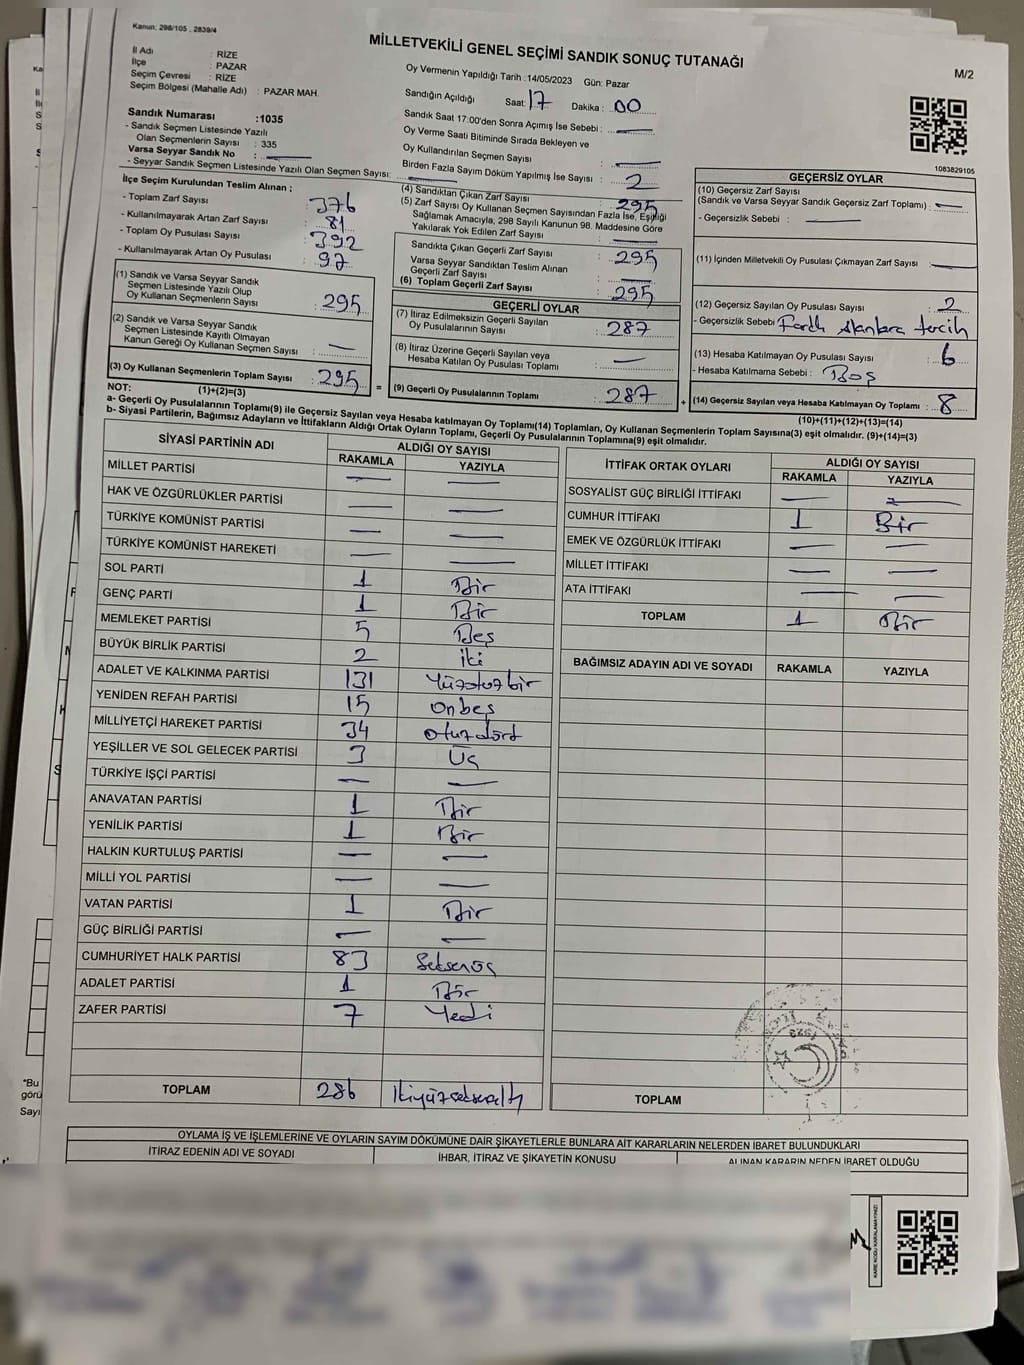 Kanun: 298/105 , 2839/4
MİLLETVEKİLİ GENEL SEÇİMİ SANDIK SONUÇ TUTANAĞI
M/2
İl Adı : RİZE
İlçe : PAZAR
Seçim Çevresi : RİZE
Seçim Bölgesi (Mahalle Adı) : PAZAR MAH.
Sandık Numarası :1035
- Sandık Seçmen Listesinde Yazılı
Olan Seçmenlerin Sayısı : 335
Varsa Seyyar Sandık No :
- Seyyar Sandık Seçmen Listesinde Yazılı Olan Seçmen Sayısı:
Oy Vermenin Yapıldığı Tarih :14/05/2023 Gün: Pazar
Sandığın Açıldığı Saat: 17 Dakika : 00
Sandık Saat 17:00'den Sonra Açımış İse Sebebi : —
Oy Verme Saati Bitiminde Sırada Bekleyen ve
Oy Kullandırılan Seçmen Sayısı : —
Birden Fazla Sayım Döküm Yapılmış İse Sayısı : 2
1083829105
İlçe Seçim Kurulundan Teslim Alınan ;
- Toplam Zarf Sayısı : 376
- Kullanılmayarak Artan Zarf Sayısı : 81
- Toplam Oy Pusulası Sayısı : 392
- Kullanılmayarak Artan Oy Pusulası : 97
(1) Sandık ve Varsa Seyyar Sandık
Seçmen Listesinde Yazılı Olup
Oy Kullanan Seçmenlerin Sayısı : 295
(2) Sandık ve Varsa Seyyar Sandık
Seçmen Listesinde Kayıtlı Olmayan
Kanun Gereği Oy Kullanan Seçmen Sayısı : —
(3) Oy Kullanan Seçmenlerin Toplam Sayısı : 295
(1)+(2)=(3)
(4) Sandıktan Çıkan Zarf Sayısı : 295
(5) Zarf Sayısı Oy Kullanan Seçmen Sayısından Fazla İse, Eşitliği
Sağlamak Amacıyla, 298 Sayılı Kanunun 98. Maddesine Göre
Yakılarak Yok Edilen Zarf Sayısı : —
Sandıkta Çıkan Geçerli Zarf Sayısı : 295
Varsa Seyyar Sandıktan Teslim Alınan
Geçerli Zarf Sayısı : —
(6) Toplam Geçerli Zarf Sayısı : 295
GEÇERLİ OYLAR
(7) İtiraz Edilmeksizin Geçerli Sayılan
Oy Pusulalarının Sayısı : 287
(8) İtiraz Üzerine Geçerli Sayılan veya
Hesaba Katılan Oy Pusulası Toplamı : —
= (9) Geçerli Oy Pusulalarının Toplamı : 287
GEÇERSİZ OYLAR
(10) Geçersiz Zarf Sayısı
(Sandık ve Varsa Seyyar Sandık Geçersiz Zarf Toplamı) : —
- Geçersizlik Sebebi : —
(11) İçinden Milletvekili Oy Pusulası Çıkmayan Zarf Sayısı : —
(12) Geçersiz Sayılan Oy Pusulası Sayısı : 2
- Geçersizlik Sebebi : Farklı Alanlara tercih
(13) Hesaba Katılmayan Oy Pusulası Sayısı : 6
- Hesaba Katılmama Sebebi : Boş
+ (14) Geçersiz Sayılan veya Hesaba Katılmayan Oy Toplamı : 8
(10)+(11)+(12)+(13)=(14)
NOT:
a- Geçerli Oy Pusulalarının Toplamı(9) ile Geçersiz Sayılan veya Hesaba katılmayan Oy Toplamı(14) Toplamları, Oy Kullanan Seçmenlerin Toplam Sayısına(3) eşit olmalıdır. (9)+(14)=(3)
b- Siyasi Partilerin, Bağımsız Adayların ve İttifakların Aldığı Ortak Oyların Toplamı, Geçerli Oy Pusulalarının Toplamına(9) eşit olmalıdır.
SİYASİ PARTİNİN ADI ALDIĞI OY SAYISI
RAKAMLA YAZIYLA
MİLLET PARTİSİ — —
HAK VE ÖZGÜRLÜKLER PARTİSİ — —
TÜRKİYE KOMÜNİST PARTİSİ — —
TÜRKİYE KOMÜNİST HAREKETİ — —
SOL PARTİ 1 Bir
GENÇ PARTİ 1 Bir
MEMLEKET PARTİSİ 5 Beş
BÜYÜK BİRLİK PARTİSİ 2 iki
ADALET VE KALKINMA PARTİSİ 131 Yüzotuzbir
YENİDEN REFAH PARTİSİ 15 onbeş
MİLLİYETÇİ HAREKET PARTİSİ 34 otuzdört
YEŞİLLER VE SOL GELECEK PARTİSİ 3 Üç
TÜRKİYE İŞÇİ PARTİSİ — —
ANAVATAN PARTİSİ 1 Bir
YENİLİK PARTİSİ 1 Bir
HALKIN KURTULUŞ PARTİSİ — —
MİLLİ YOL PARTİSİ — —
VATAN PARTİSİ 1 Bir
GÜÇ BİRLİĞİ PARTİSİ — —
CUMHURİYET HALK PARTİSİ 83 Seksenüç
ADALET PARTİSİ 1 Bir
ZAFER PARTİSİ 7 Yedi
TOPLAM 286 İkiyüzseksenaltı
İTTİFAK ORTAK OYLARI ALDIĞI OY SAYISI
RAKAMLA YAZIYLA
SOSYALİST GÜÇ BİRLİĞİ İTTİFAKI — —
CUMHUR İTTİFAKI 1 Bir
EMEK VE ÖZGÜRLÜK İTTİFAKI — —
MİLLET İTTİFAKI — —
ATA İTTİFAKI — —
TOPLAM 1 Bir
BAĞIMSIZ ADAYIN ADI VE SOYADI RAKAMLA YAZIYLA
1923
TOPLAM
OYLAMA İŞ VE İŞLEMLERİNE VE OYLARIN SAYIM DÖKÜMÜNE DAİR ŞİKAYETLERLE BUNLARA AİT KARARLARIN NELERDEN İBARET BULUNDUKLARI
İTİRAZ EDENİN ADI VE SOYADI İHBAR, İTİRAZ VE ŞİKAYETİN KONUSU ALINAN KARARIN NEDEN İBARET OLDUĞU
*Bu
görü
Sayı
KARE KODU KARALAMAYINIZ!